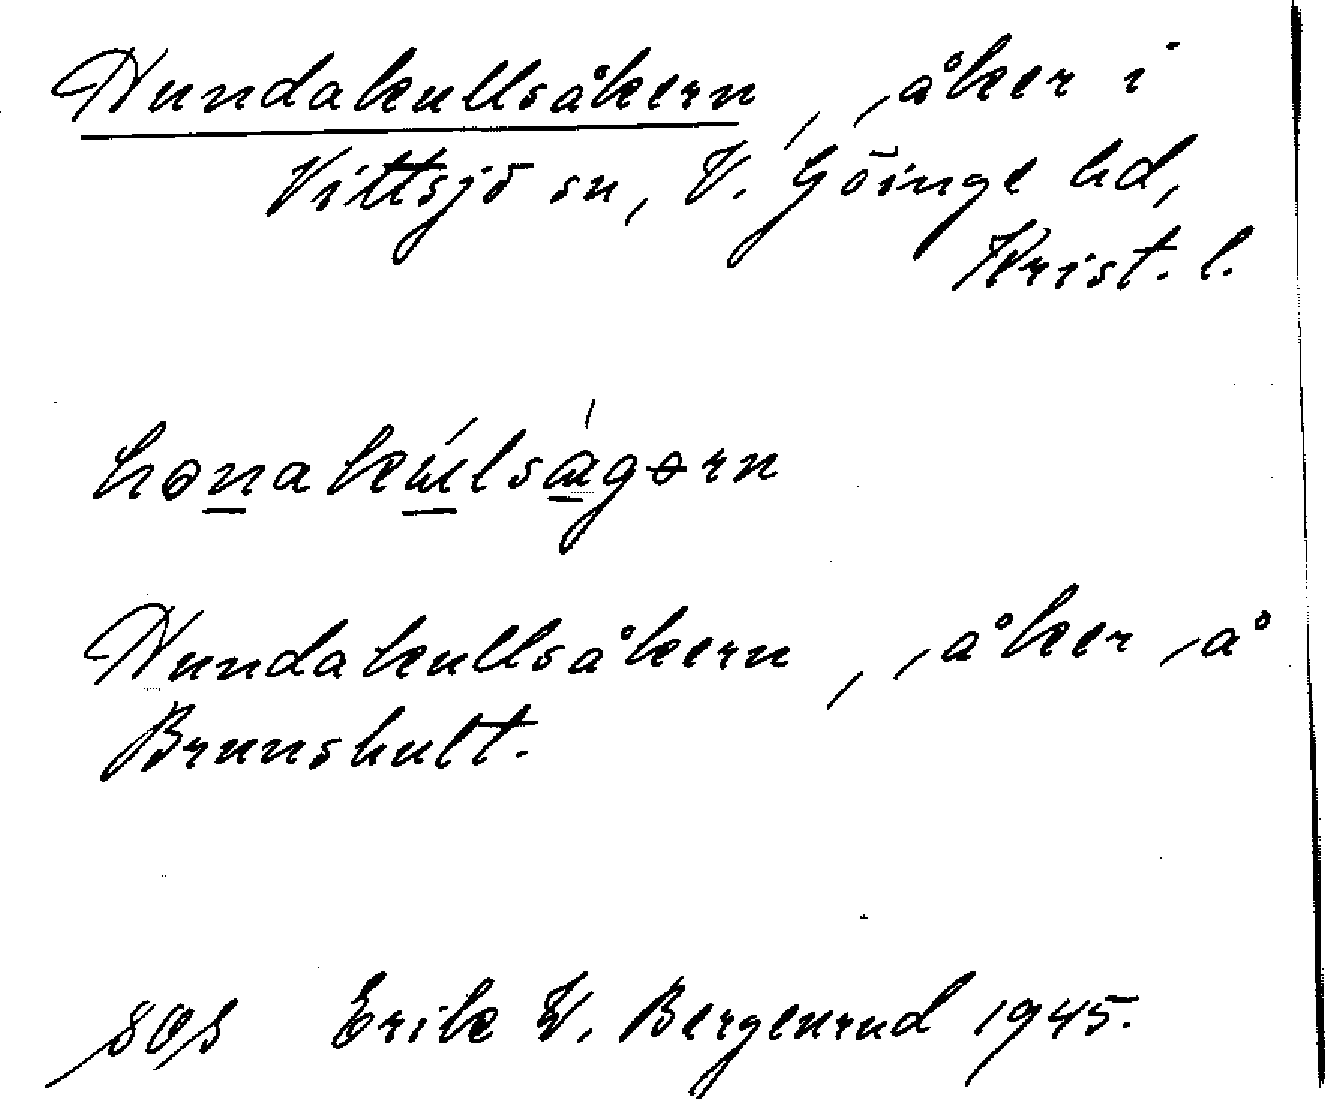 Hundakullsåkern, åker i
Vittsjö sn, V. Göinge hd,
Krist. l.
Hundakullsåkern, åker å
Brunshult.
Erik W. Bergenrud 1945.